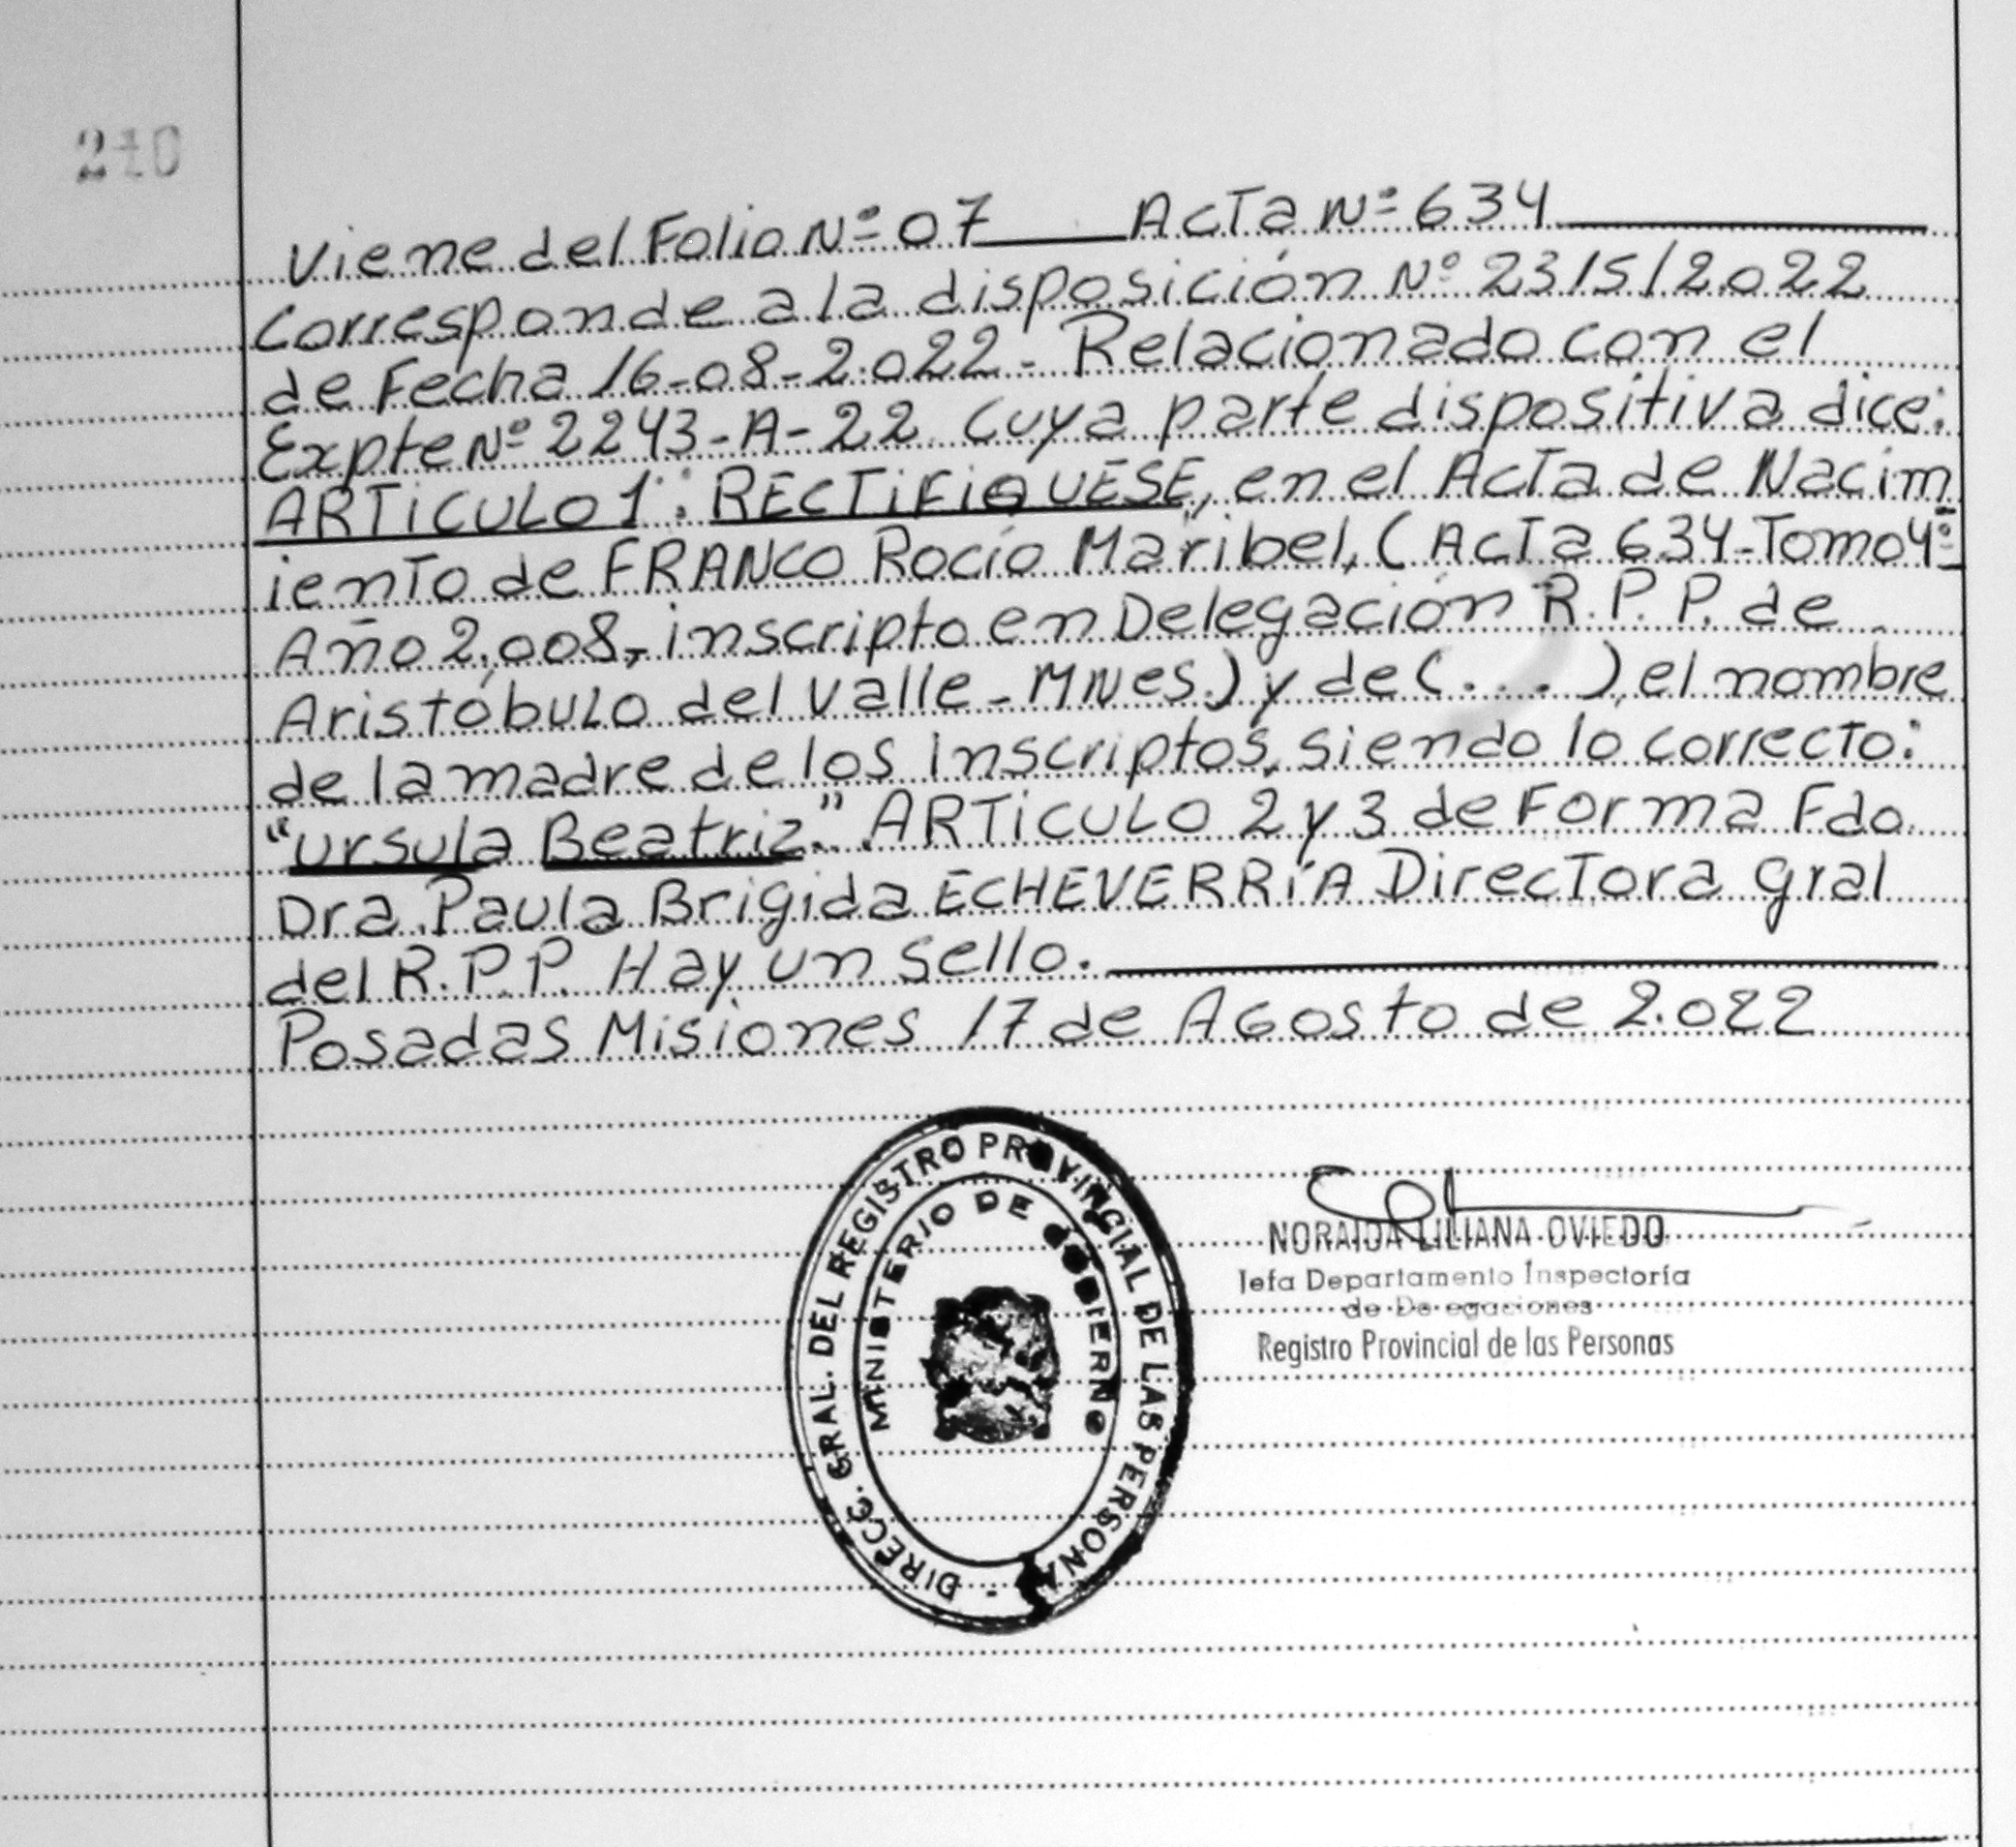 210
Viene del Folio Nº 07 Acta Nº 634
Corresponde a la disposición Nº 2315/2.022
de Fecha 16-08-2.022- Relacionado con el
Expte Nº 2243-A-22 Cuya parte dispositiva dice:
ARTICULO 1º: RECTIFIQUESE, en el Acta de Nacim
iento de FRANCO Rocío Maribel, (Acta 634-Tomo 4º
Año 2.008, inscripto en Delegación R.P.P. de
Aristóbulo del Valle - MNes.) y de (....), el nombre
de la madre de los Inscriptos, siendo lo correcto:
"Ursula Beatriz". ARTICULO 2 y 3 de Forma Fdo.
Dra. Paula Brigida ECHEVERRÍA Directora gral
del R.P.P. Hay un sello.
Posadas Misiones 17 de Agosto de 2.022
DIRECC. GRAL. DEL REGISTRO PROVINCIAL DE LAS PERSONA
MINISTERIO DE GOBIERNO
NORAIDA LILIANA OVIEDO
Jefa Departamento Inspectoría
de Delegaciones
Registro Provincial de las Personas